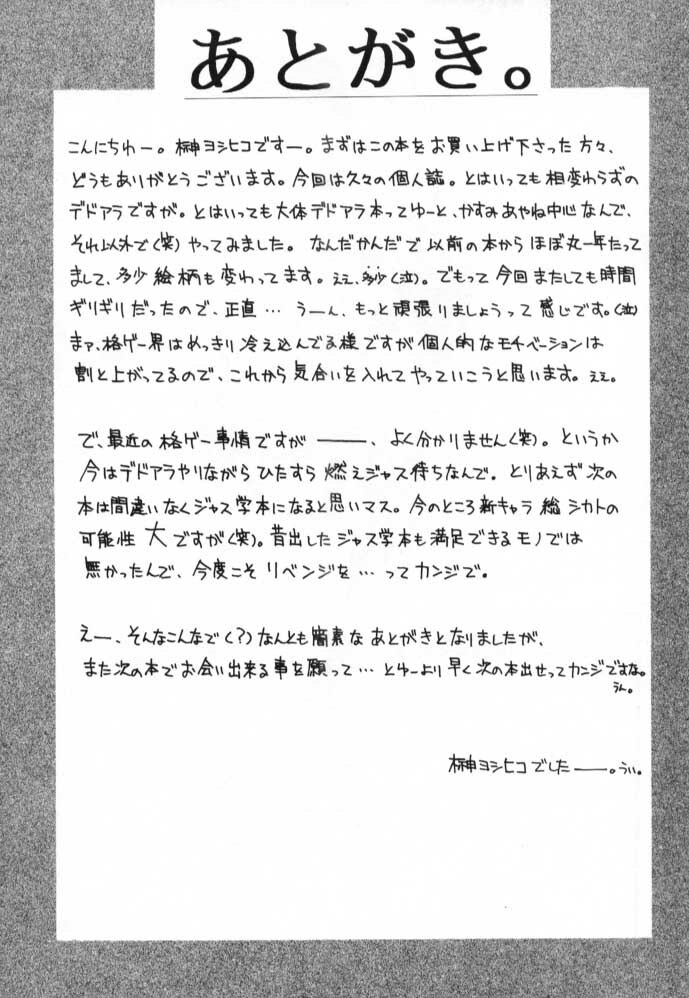 あとがき。
こんにちわー。榊ヨシヒコですー。まずはこの本をお買い上げ下さった方々、
どうもありがとうございます。今回は久々の個人誌。とはいっても相変わらずの
デドアラですが。とはいっても大体デドアラ本ってゆーと、かすみあやね中心なんで、
それ以外で(笑)やってみました。なんだかんだで以前の本からほぼ丸一年たって
まして、多少絵柄も変わってます。ええ、多少(泣)。でもって今回またしても時間
ギリギリだったので、正直…うーん、もっと頑張りましょうって感じです。(泣)
まァ、格ゲー界はめっきり冷え込んでる様ですが個人的なモチベーションは
割と上がってるので、これから気合いを入れてやっていこうと思います。ええ。
で、最近の格ゲー事情ですが───、よく分かりません(笑)。というか
今はデドアラやりながらひたすら燃えジャス待ちなんで。とりあえず次の
本は間違いなくジャス学本になると思いマス。今のところ新キャラ総シカトの
可能性大ですが(笑)。昔出したジャス学本も満足できるモノでは
無かったんで、今度こそリベンジを…ってカンジで。
えー、そんなこんなで(?)なんとも簡素なあとがきとなりましたが、
また次の本でお会い出来る事を願って…とゆーより早く次の本出せってカンジですな。
うん。
榊ヨシヒコでした──。うぃ。